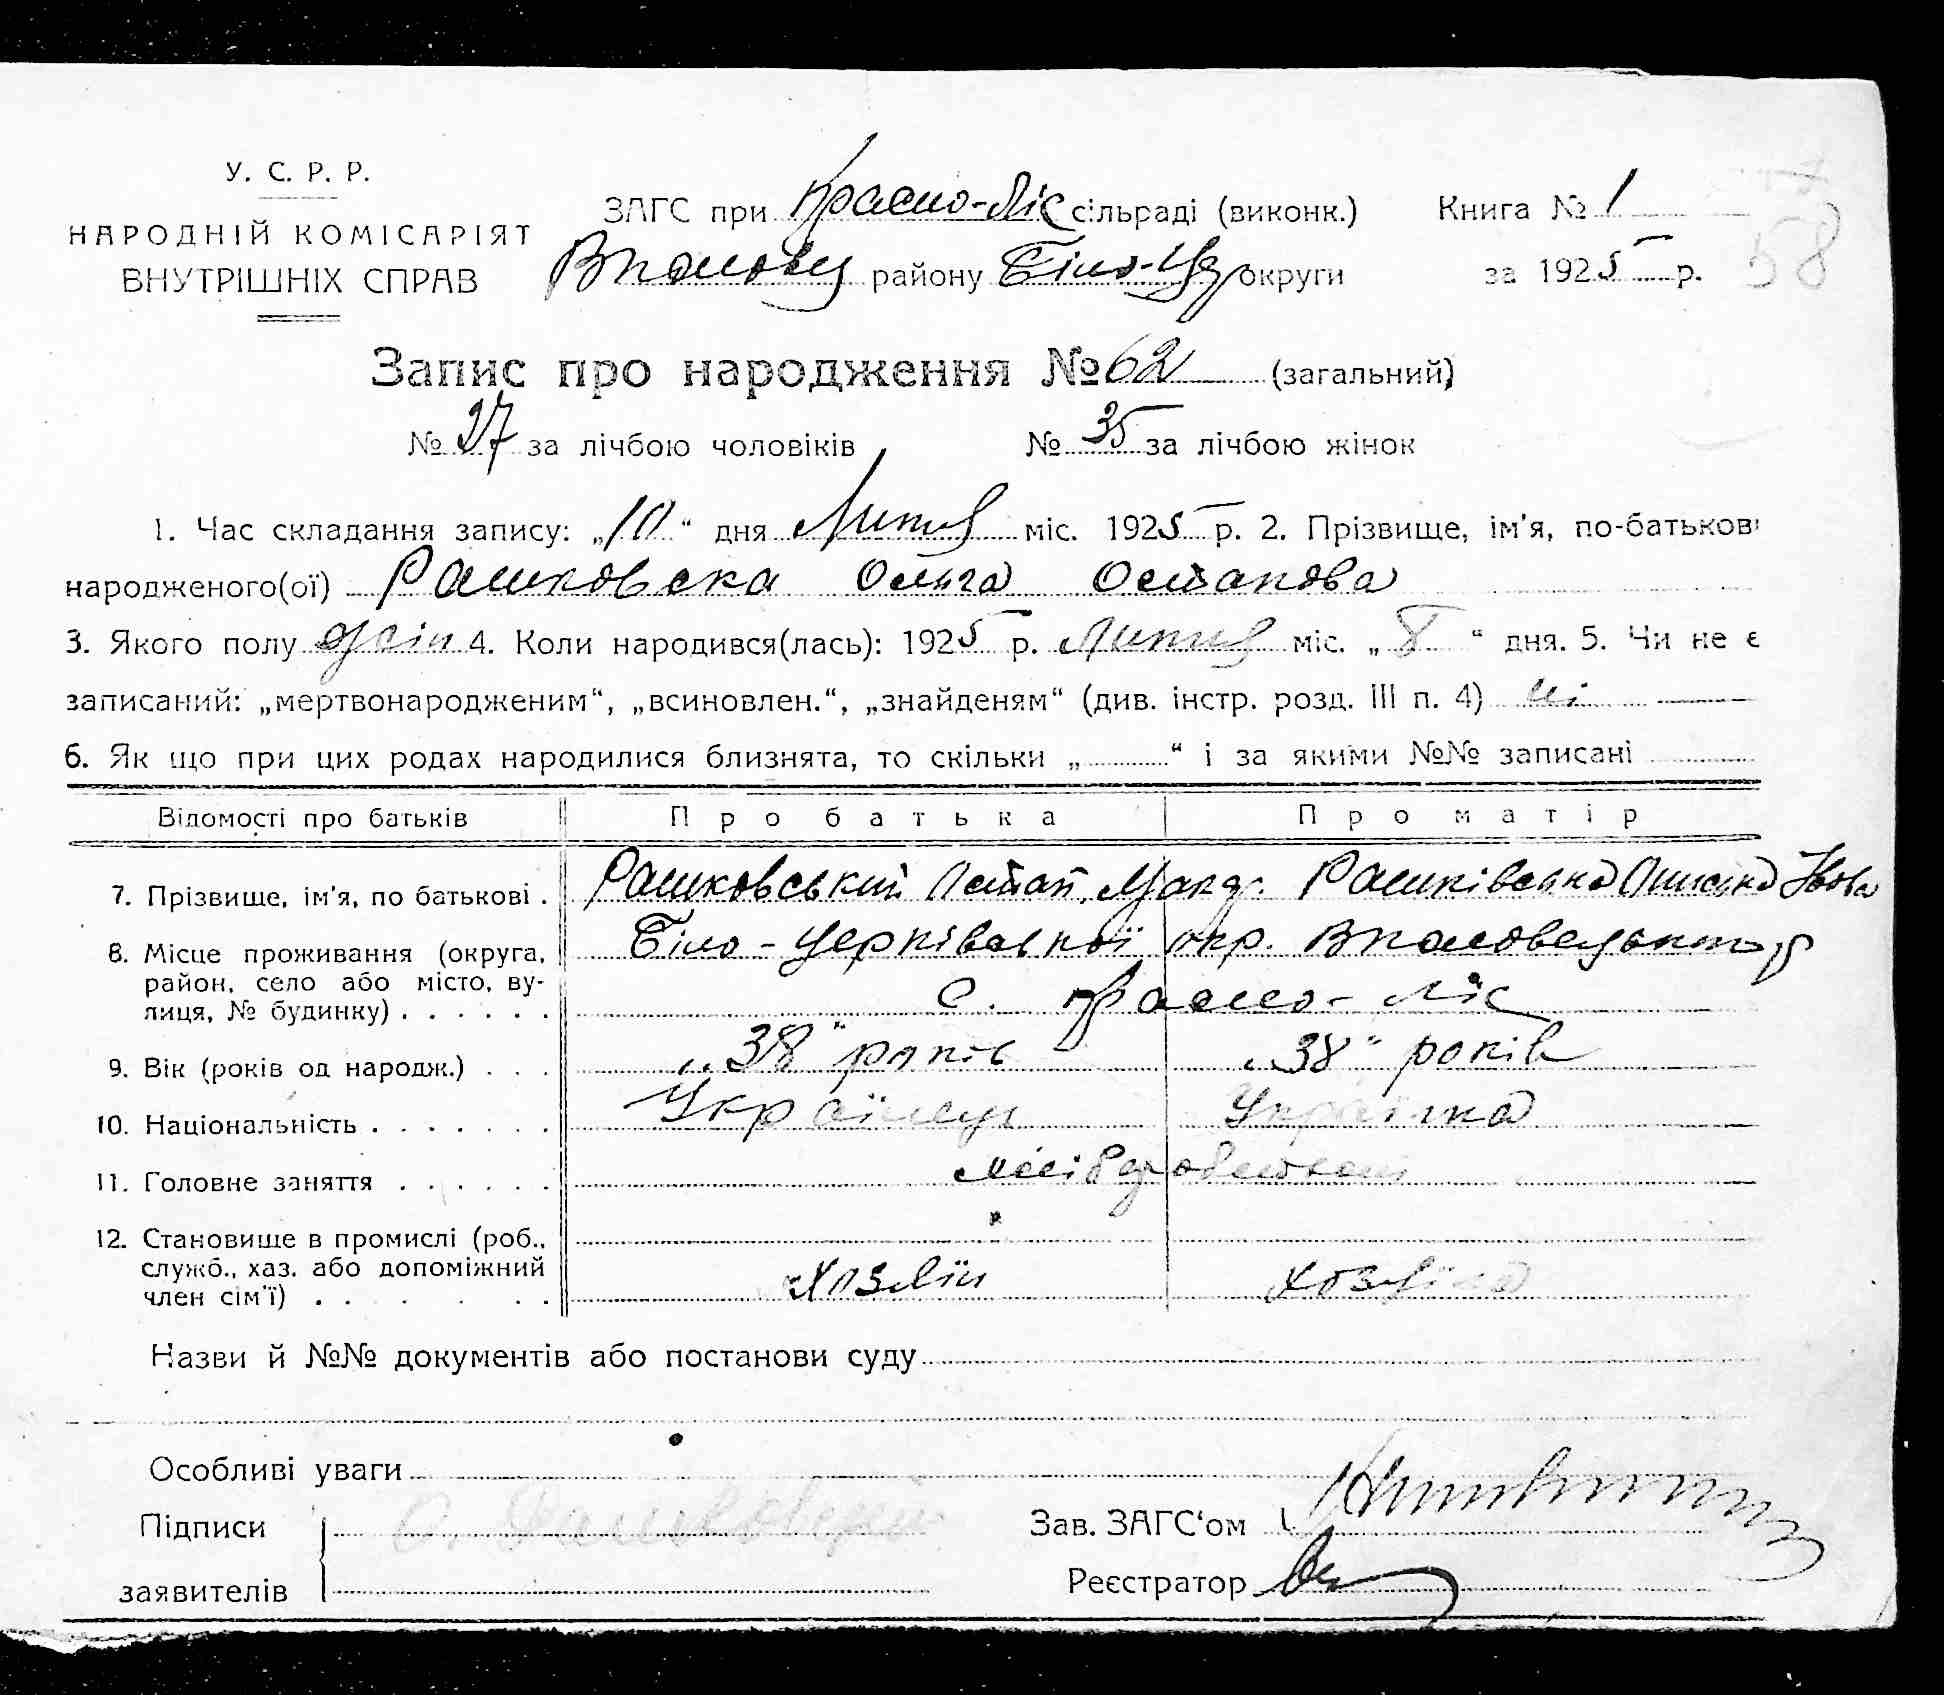 У. С. Р. Р.
НАРОДНІЙ КОМІСАРІЯТ
ВНУТРІШНІХ СПРАВ
ЗАГС при Красно-Ліс сільраді (виконк.) Книга № 1
району Біло-Цер округи за 1925 р.
58
Запис про народження № 62 (загальний)
№ 27 за лічбою чоловіків № 35 за лічбою жінок
1. Час складання запису: „10“ дня Липня міс. 1925 р. 2. Прізвище, ім'я, по-батькові
народженого(ої) Рашковска Ольга Остапова
3. Якого полу жін 4. Коли народився(лась): 1925 р. Липня міс. „8“ дня. 5. Чи не є
записаний: „мертвонародженим“, „всиновлен.“, „знайденям“ (див. інстр. розд. III п. 4) ні
6. Як що при цих родах народилися близнята, то скільки „ “ і за якими №№ записані
Відомості про батьків Про батька Про матір
7. Прізвище, ім'я, по батькові . Рашковський Остап Рашківська
8. Місце проживання (округа, район, село або місто, вулиця, № будинку) . . . . . . Біло-Церківської окр.
с. Красно-Ліс
9. Вік (років од народж.) . . . „38“ років „38“ років
10. Національність . . . . . . . Українець Українка
11. Головне заняття . . . . . .
12. Становище в промислі (роб., служб., хаз. або допоміжний член сім'ї) . . . . . . хозяїн хозяїка
Назви й №№ документів або постанови суду
Особливі уваги
Підписи заявителів О. Рашковскій
Зав. ЗАГС'ом
Реєстратор